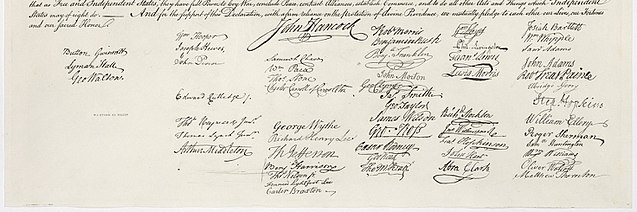 that as Free and Independent States, they have full Power to levy War, conclude Peace, contract Alliances, establish Commerce, and to do all other Acts and Things which Independent
States may of right do. And for the support of this Declaration, with a firm reliance on the Protection of divine Providence, we mutually pledge to each other our Lives, our Fortunes
and our sacred Honor.
John Hancock
Button Gwinnett
Lyman Hall
Geo Walton.
Wm Hooper
Joseph Hewes,
John Penn
Edward Rutledge.
Thos Heyward Junr.
Thomas Lynch Junr.
Arthur Middleton
Samuel Chase
Wm Paca
Thos Stone
Charles Carroll of Carrollton
George Wythe
Richard Henry Lee
Th Jefferson
Benj Harrison
Thos Nelson jr.
Francis Lightfoot Lee
Carter Braxton
Robt Morris
Benjamin Rush
Benj. Franklin
John Morton
Geo Clymer
Jas. Smith
Geo. Taylor
James Wilson
Geo. Ross
Caesar Rodney
Geo Read
Tho M:Kean
Wm Floyd
Phil. Livingston
Frans. Lewis
Lewis Morris
Richd. Stockton
Jno Witherspoon
Fras. Hopkinson
John Hart
Abra Clark
Josiah Bartlett
Wm: Whipple
Saml Adams
John Adams
Robt Treat Paine
Elbridge Gerry
Step. Hopkins
William Ellery
Roger Sherman
Saml Huntington
Wm Williams
Oliver Wolcott
Matthew Thornton